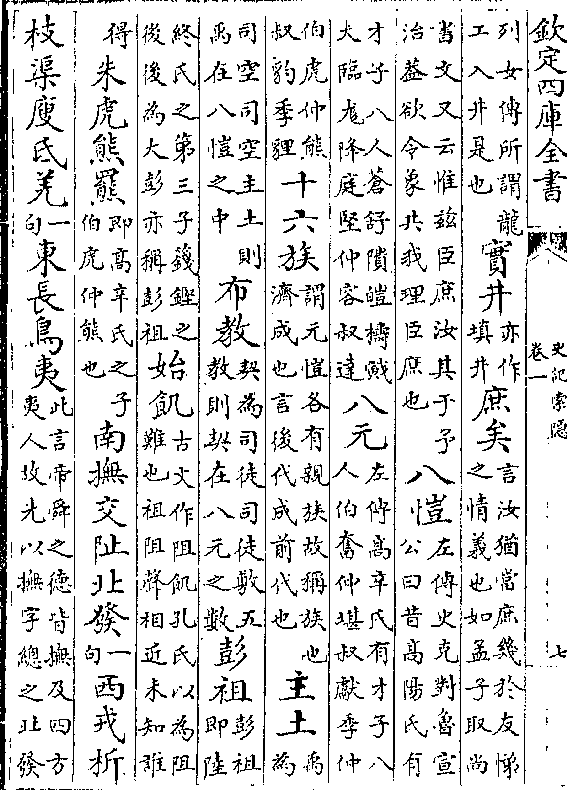 欽定四庫全書
史記索隱
卷一
七
列女傳所謂龍工入井是也實井亦作填井庶矣言汝猶當庶幾於友悌之情義也如孟子取尚
書文又云惟茲臣庶汝其于予治蓋欲令象共我理臣庶也八愷左傳史克對魯宣公曰昔高陽氏有
才子八人蒼舒隤皚檮戭大臨尨降庭堅仲容叔達八元左傳高辛氏有才子八人伯奮仲堪叔獻季仲
伯虎仲熊叔豹季貍十六族謂元愷各有親族故稱族也濟成也言後代成前代也主土禹為
司空司空主土則禹在八愷之中布教契為司徒司徒敷五教則契在八元之數彭祖彭祖即陸
終氏之第三子籛鏗之後後為大彭亦稱彭祖始飢古文作阻飢孔氏以為阻難也祖阻聲相近未知誰
得朱虎熊羆即高辛氏之子伯虎仲熊也南撫交阯北發一句西戎析
枝渠廋氐羌一句東長鳥夷此言帝舜之德皆撫及四方夷人故先以撫字總之北發